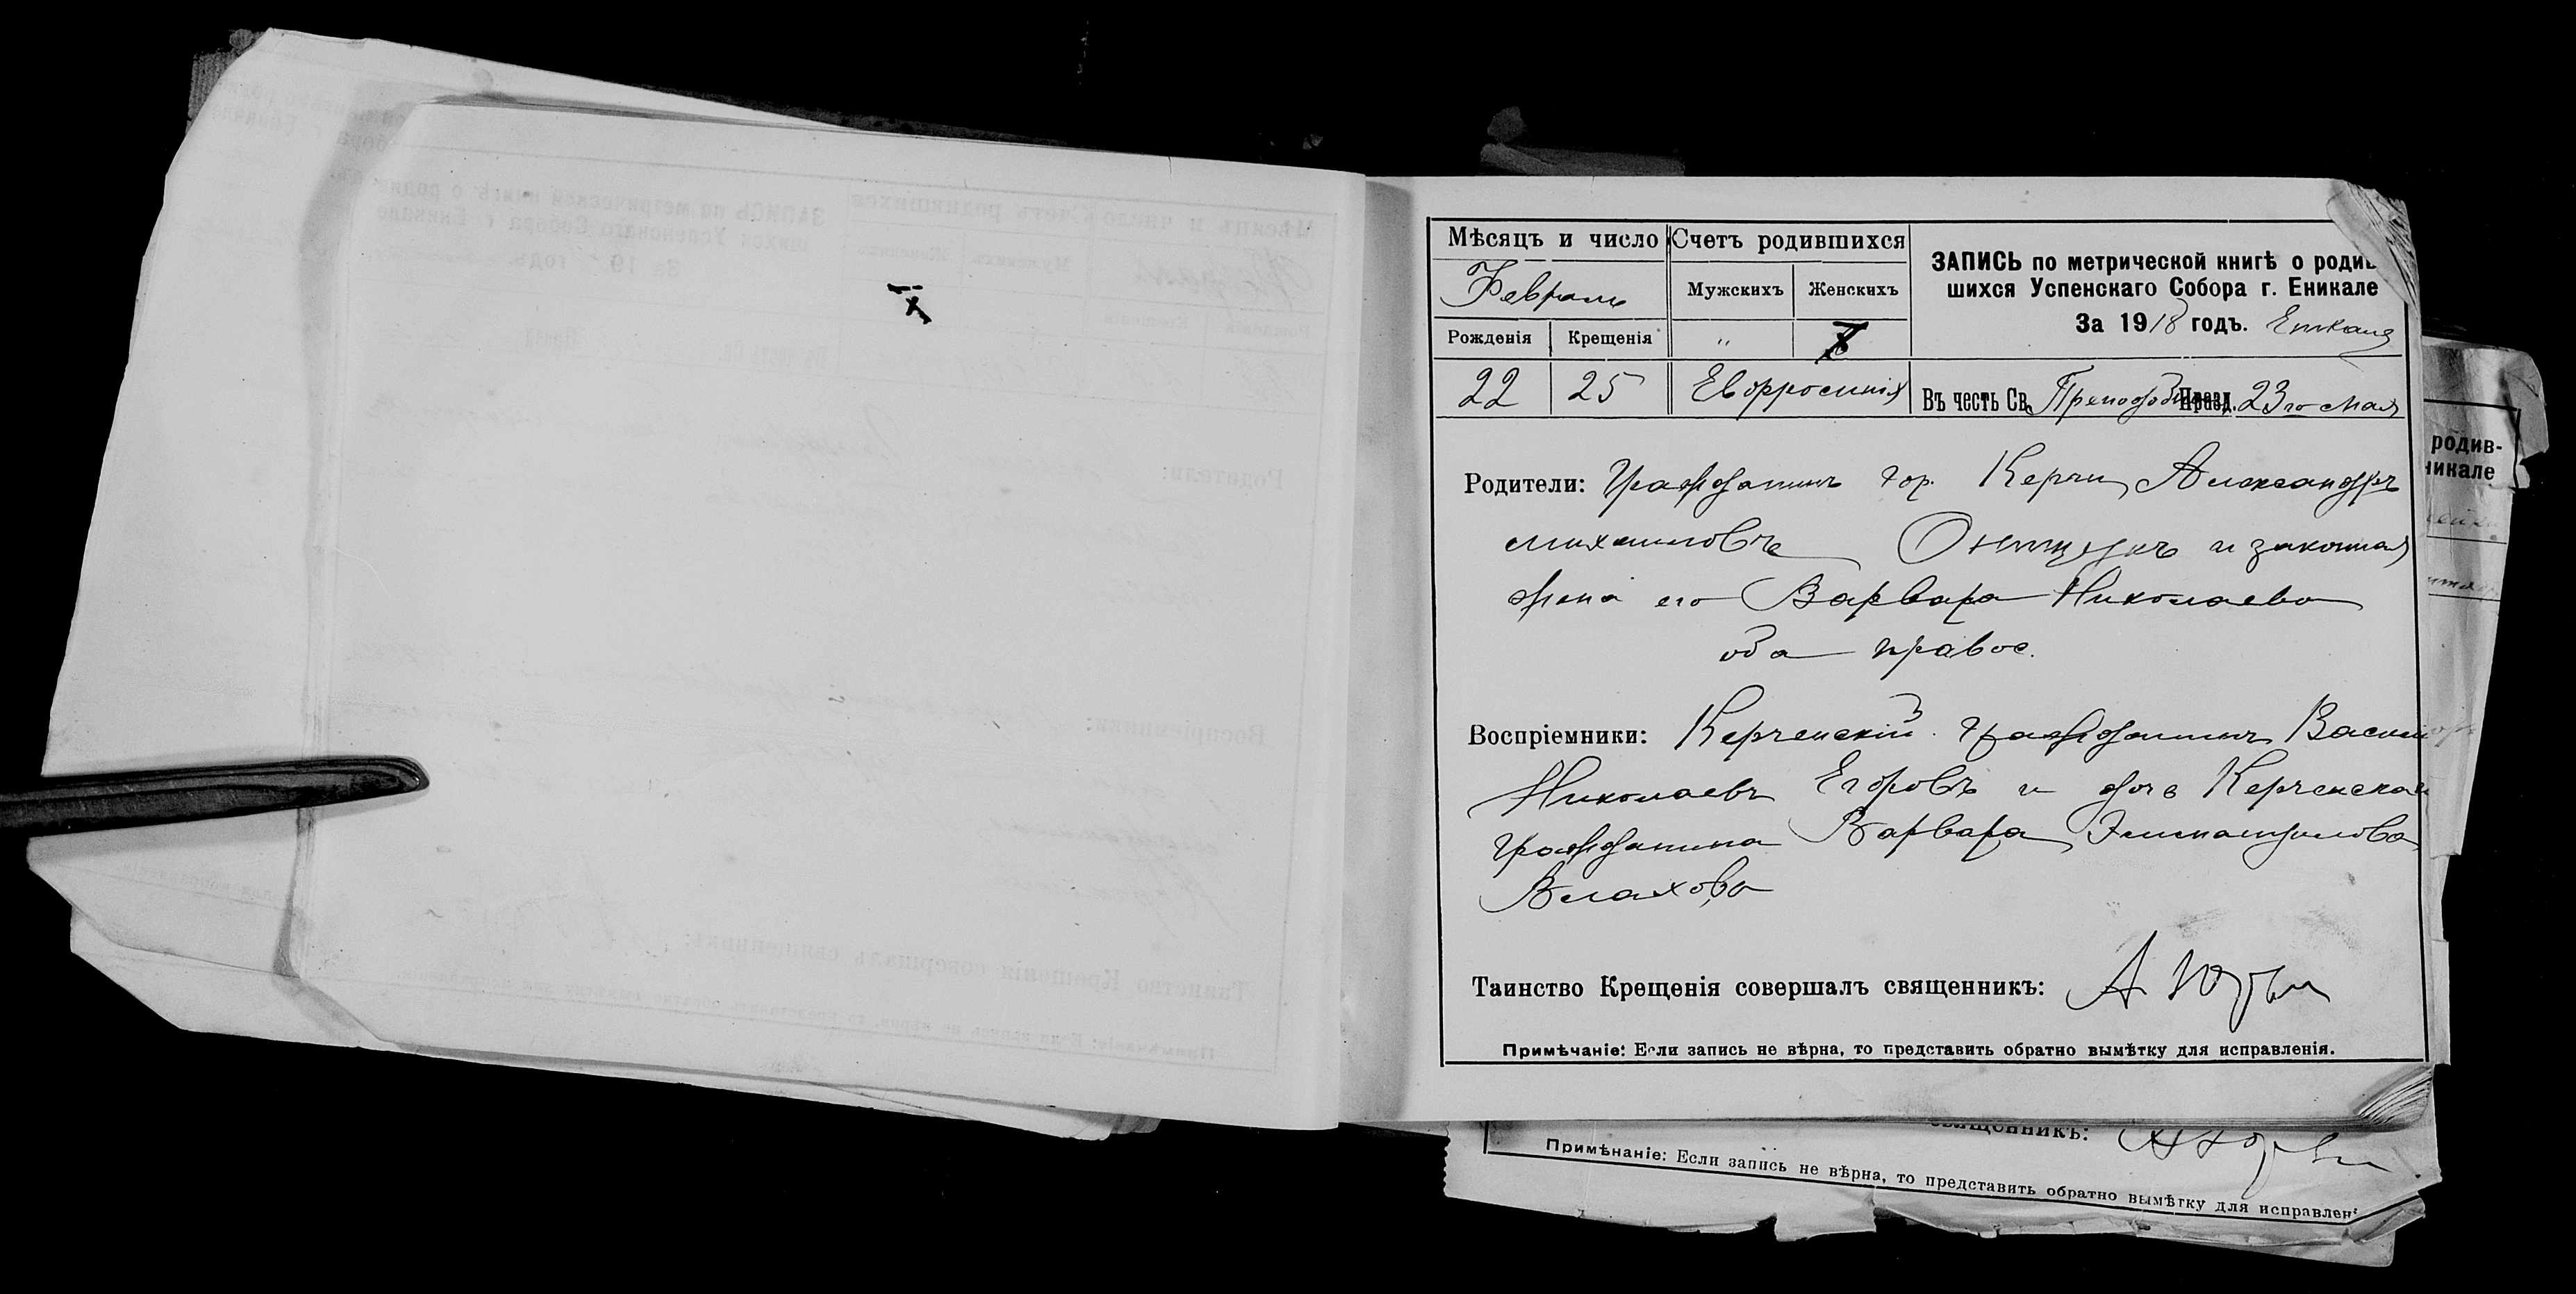 Мѣсяцъ и число
Февраль
Рожденія
Крещенія
22
25
Счетъ родившихся
Мужскихъ
Женскихъ
"
Евфросинія
ЗАПИСЬ по метрической книгѣ о родив
шихся Успенскаго Собора г. Еникале
За 1918 годъ. Еникале
Въ честь Св. Преподоб Празд. 23го мая
Родители: Гражданинъ гор. Керчи Александръ
Михаиловъ и законная
жена его Варвара Николаева
оба правос.
Воспріемники: Керченскій гражданинъ
Николаевъ Егоровъ и дочь Керченскаго
гражданина Варвара
Влахова
Таинство Крещенія совершалъ священникъ: А
Примѣчаніе: Если запись не вѣрна, то представить обратно вымѣтку для исправленія.
родив-
никале
священникъ:
Примѣчаніе: Если запись не вѣрна, то представить обратно вымѣтку для исправлені